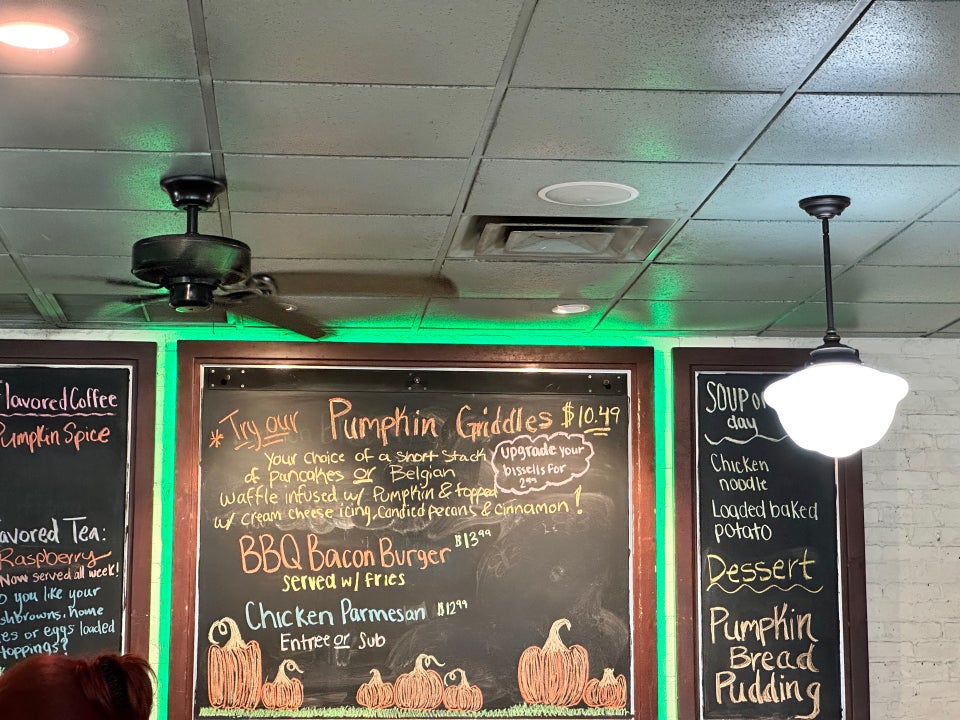 Flavored Coffee
Pumpkin Spice
avored Tea:
Raspberry
Now served all week!
o you like your
shbrowns, home
es or eggs loaded
toppings?
* Try our Pumpkin Griddles $10.49
Your choice of a short stack
of pancakes or Belgian
waffle infused w/ Pumpkin & topped
w/ cream cheese icing, candied pecans & cinnamon!
Upgrade your
bissells for
2.99
BBQ Bacon Burger $13.99
served w/ fries
Chicken Parmesan $12.99
Entree or Sub
SOUP o
day
Chicken
noodle
Loaded baked
potato
Dessert
Pumpkin
Bread
Pudding